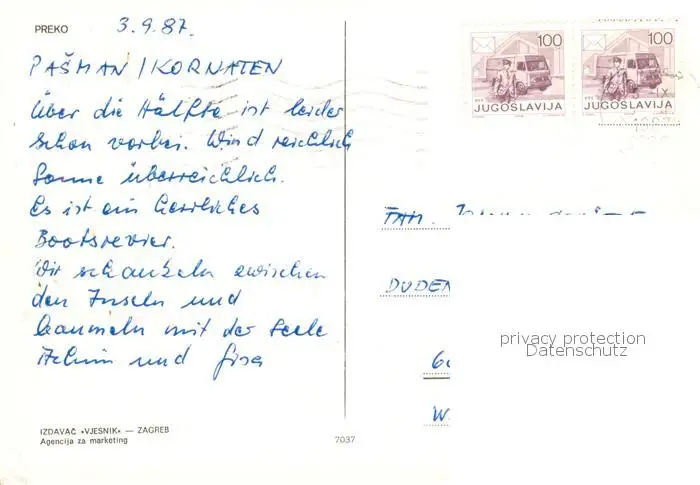 PREKO 3.9.87.
PAŠMAN / KORNATEN
Über die Hälfte ist leider
schon vorbei. Wind reichlich
Sonne überreichlich.
Es ist ein herrliches
Bootsrevier.
Wir schaukeln zwischen
den Inseln und
baumeln mit der Seele
Achim und Gisa
IZDAVAČ «VJESNIK» — ZAGREB
Agencija za marketing
7037
100 100
PTT JUGOSLAVIJA PTT JUGOSLAVIJA
FAM.
DUDEN
privacy protection
Datenschutz
6
W